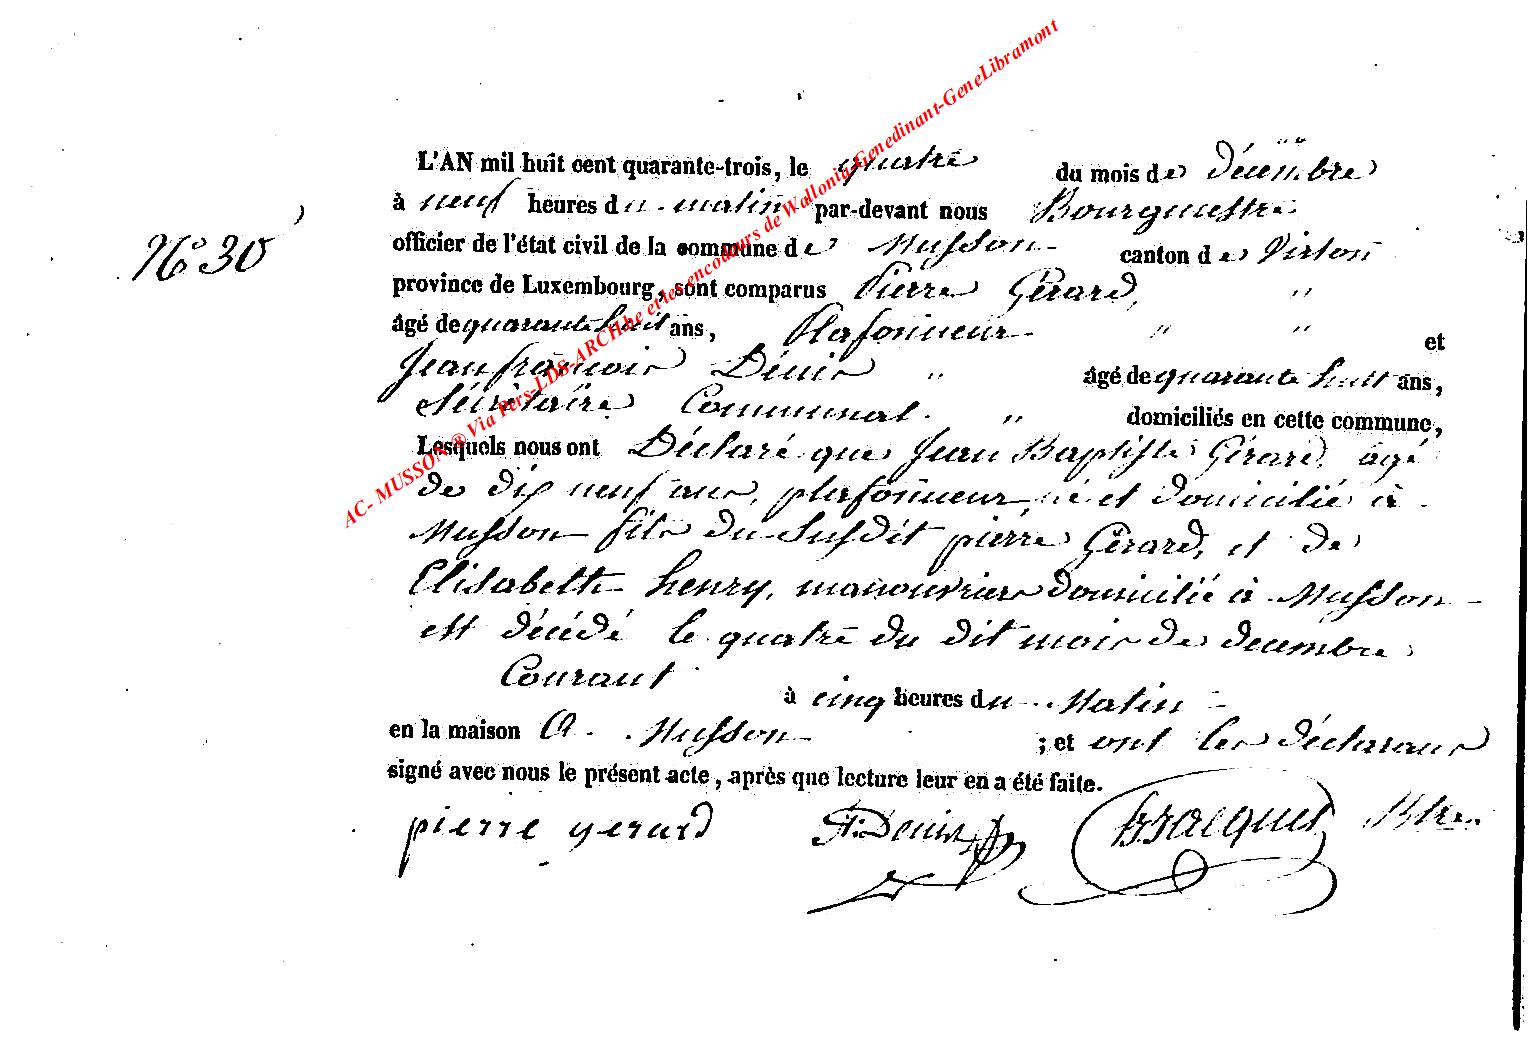 AC- MUSSON ® Via Pers-LDS-ARCH.be et les encodeurs de Wallonia-Genedinant-GeneLibramont
L'AN mil huit cent quarante-trois, le quatre du mois de décembre
à neuf heures du matin par-devant nous Bourgmestre
N° 30
officier de l'état civil de la commune de Musson canton de Virton
province de Luxembourg, sont comparus Pierre Gérard, "
âgé de quarante huit ans, Plafonneur " " et
Jean françois Dénis " âgé de quarante huit ans,
Sécrétaire Communal. " domiciliés en cette commune,
Lesquels nous ont Déclaré que Jean Baptiste Gérard, agé
de dix neuf ans, plafonneur, né et domicilié à
Musson fils du Susdit pierre Gérard, et de
Elisabeth henry, manouvriers domicilié à Musson
est décédé le quatre du dit mois de decembre
Courant à cinq heures du Matin
en la maison A Musson ; et ont les déclarans
signé avec nous le présent acte, après que lecture leur en a été faite.
pierre gerard Denis Jacques